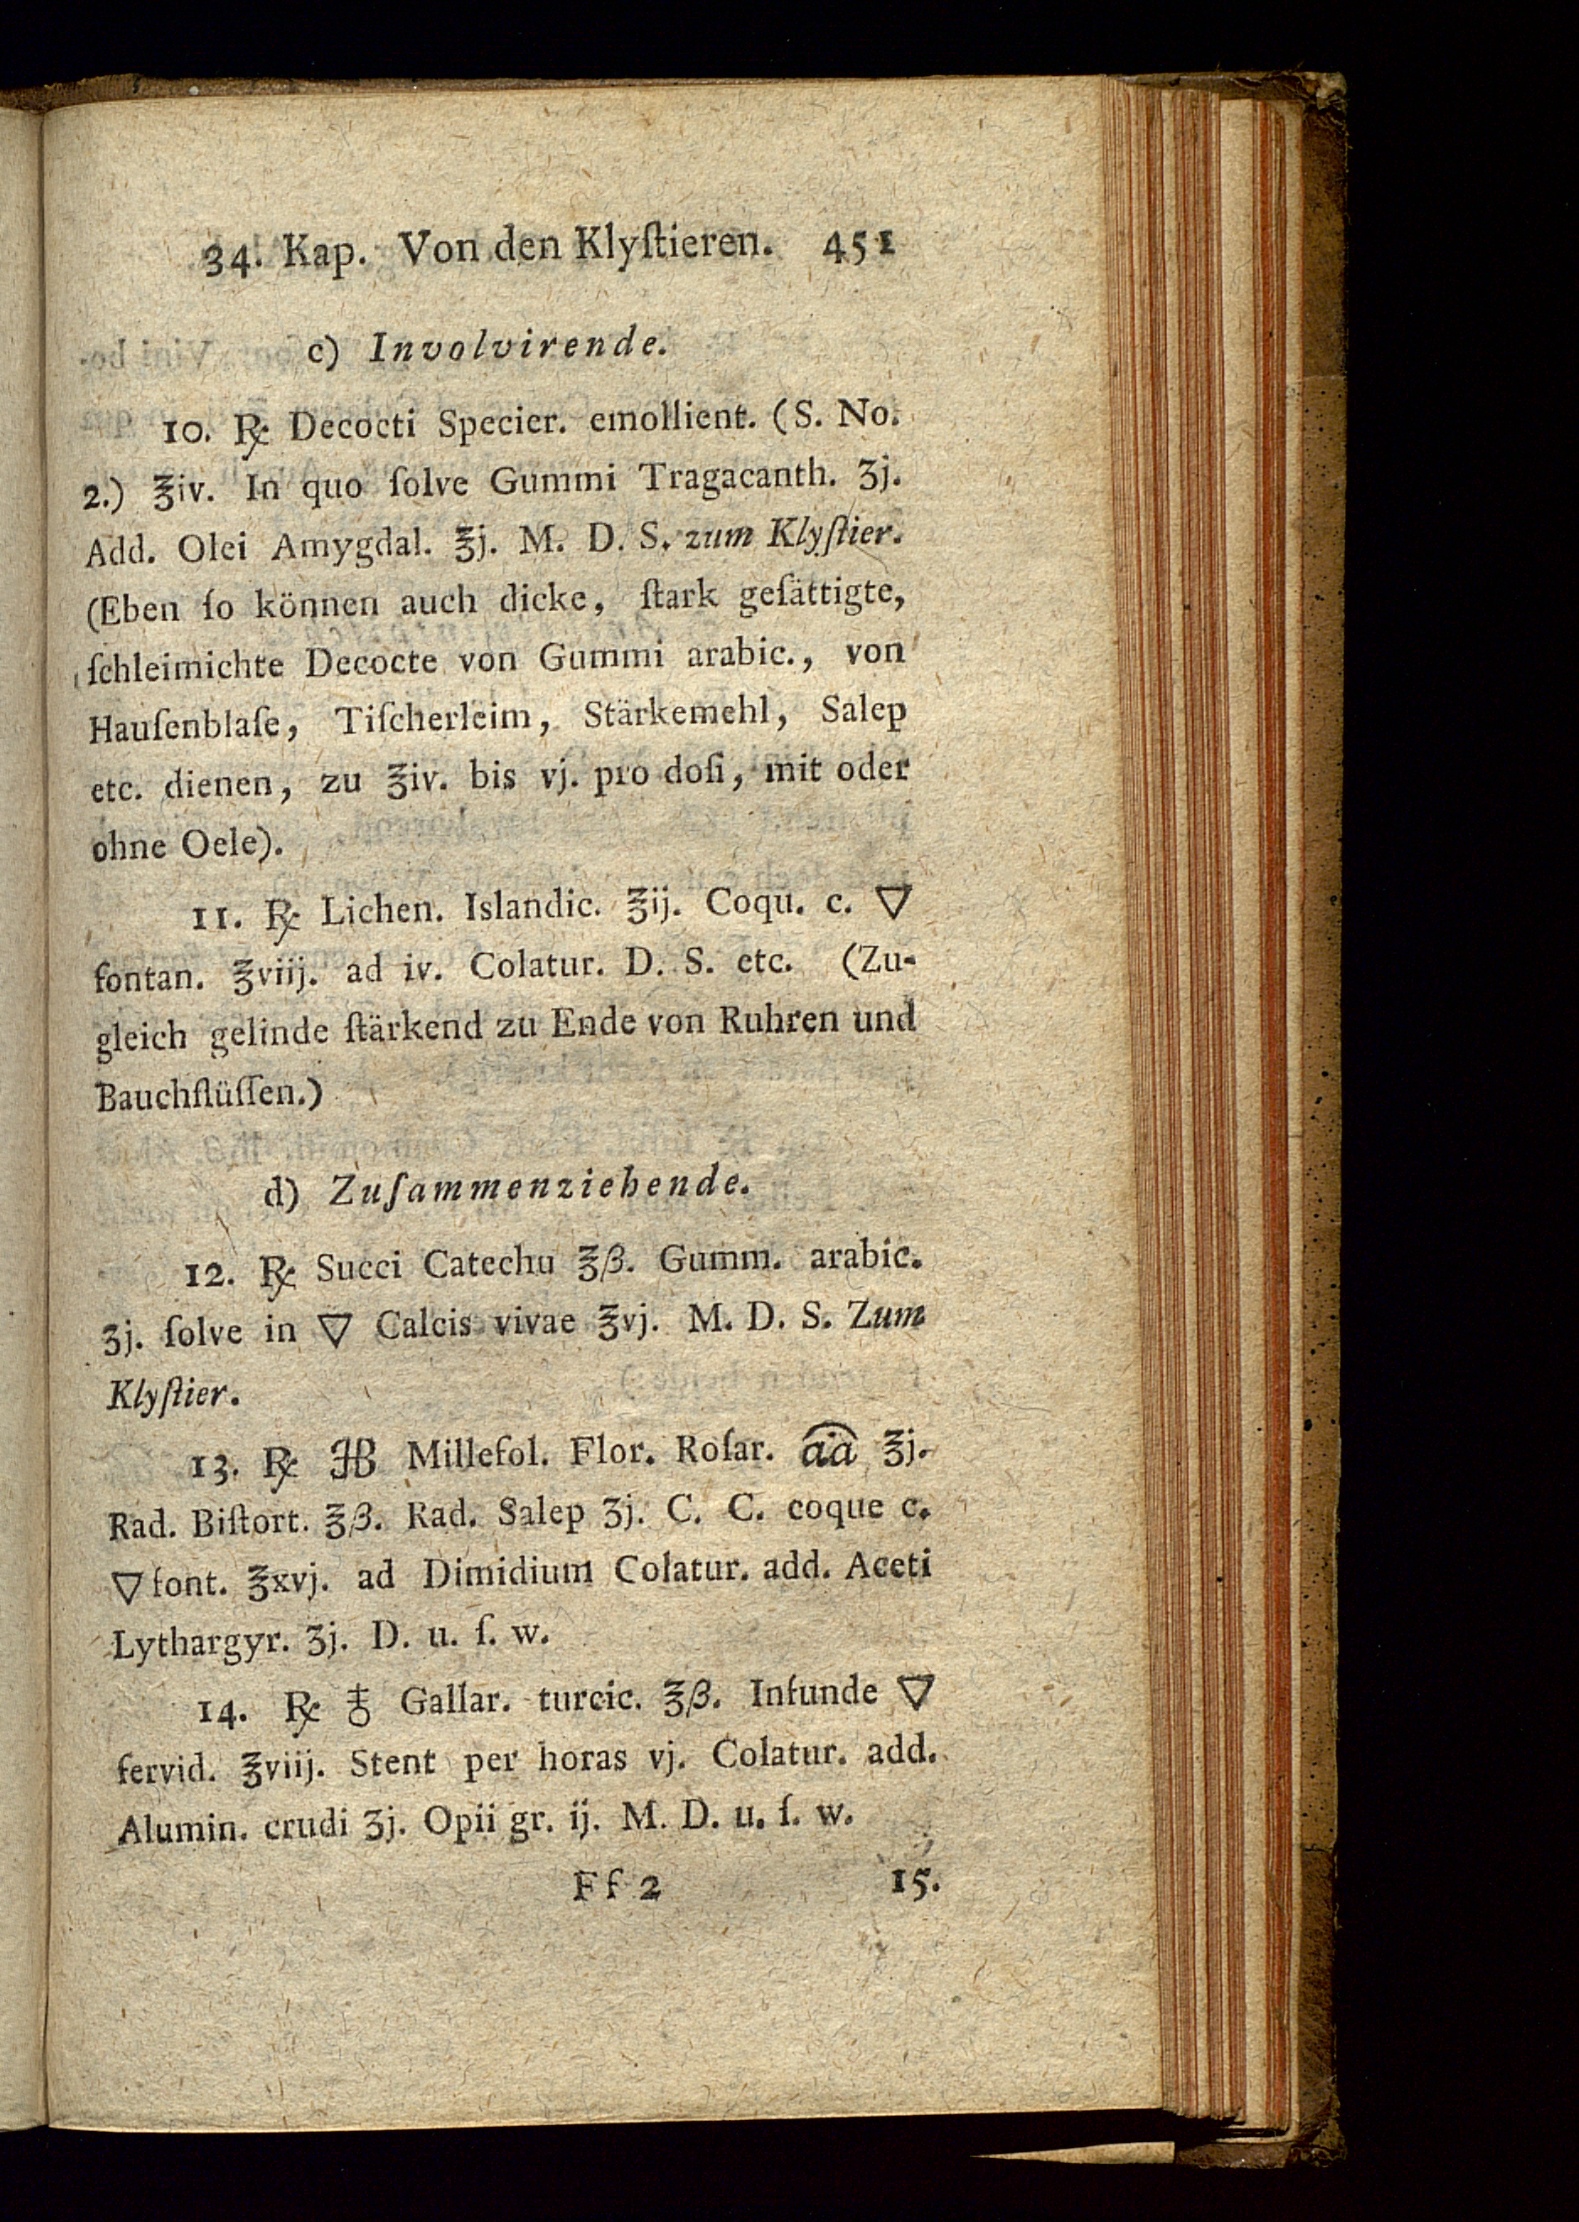 34. Kap. Von den Klyſtieren. 451
c) Involvirende.
10. ℞ Decocti Specier. emollient. (S. No.
2.) ℥iv. In quo ſolve Gummi Tragacanth. ʒj.
Add. Olei Amygdal. ℥j. M. D. S. zum Klyſtier.
(Eben ſo können auch dicke, ſtark geſättigte,
ſchleimichte Decocte von Gummi arabic., von
Hauſenblaſe, Tiſcherleim, Stärkemehl, Salep
etc. dienen, zu ℥iv. bis vj. pro doſi, mit oder
ohne Oele).
11. ℞ Lichen. Islandic. ℥ij. Coqu. c. 🜄
fontan. ℥viij. ad iv. Colatur. D. S. etc. (Zu-
gleich gelinde ſtärkend zu Ende von Ruhren und
Bauchflüſſen.)
d) Zuſammenziehende.
12. ℞ Succi Catechu ℥β. Gumm. arabic.
ʒj. ſolve in 🜄 Calcis vivae ℥vj. M. D. S. Zum
Klyſtier.
13. ℞ HB Millefol. Flor. Roſar. aa ℥j.
Rad. Biſtort. ℥β. Rad. Salep ʒj. C. C. coque c.
🜄 font. ℥xvj. ad Dimidium Colatur. add. Aceti
Lythargyr. ʒj. D. u. ſ. w.
14. ℞ ♁ Gallar. turcic. ℥β. Infunde 🜄
fervid. ℥viij. Stent per horas vj. Colatur. add.
Alumin. crudi ʒj. Opii gr. ij. M. D. u. ſ. w.
Ff 2 15.